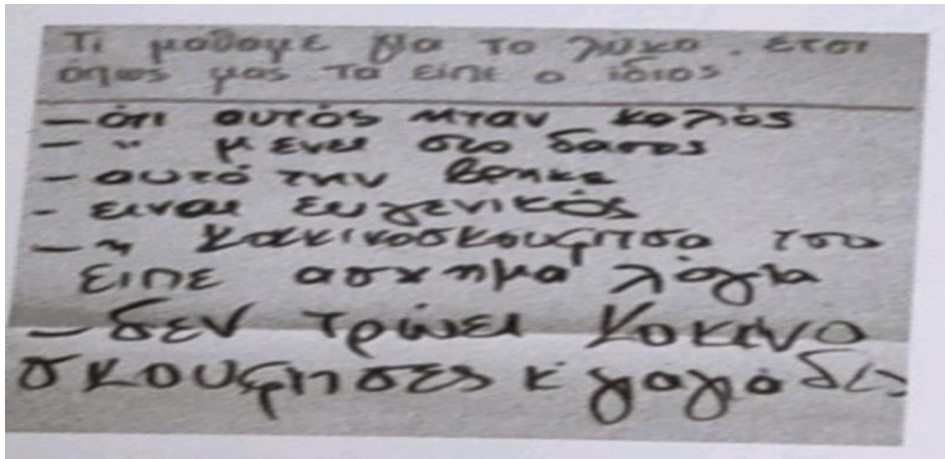 Τι μαθαμε για το λύκο. έτσι
όπως μας τα είπε ο ίδιος
- ότι αυτός ηταν καλός
- " μενει στο δασος
- αυτό την βρηκε
- ειναι ευγενικός
- η κακινοσκουφιτσα του
ειπε ασχημα λόγια
- δεν τρώει κοκινο
σκουφιτσες κ' γιαγιάδες